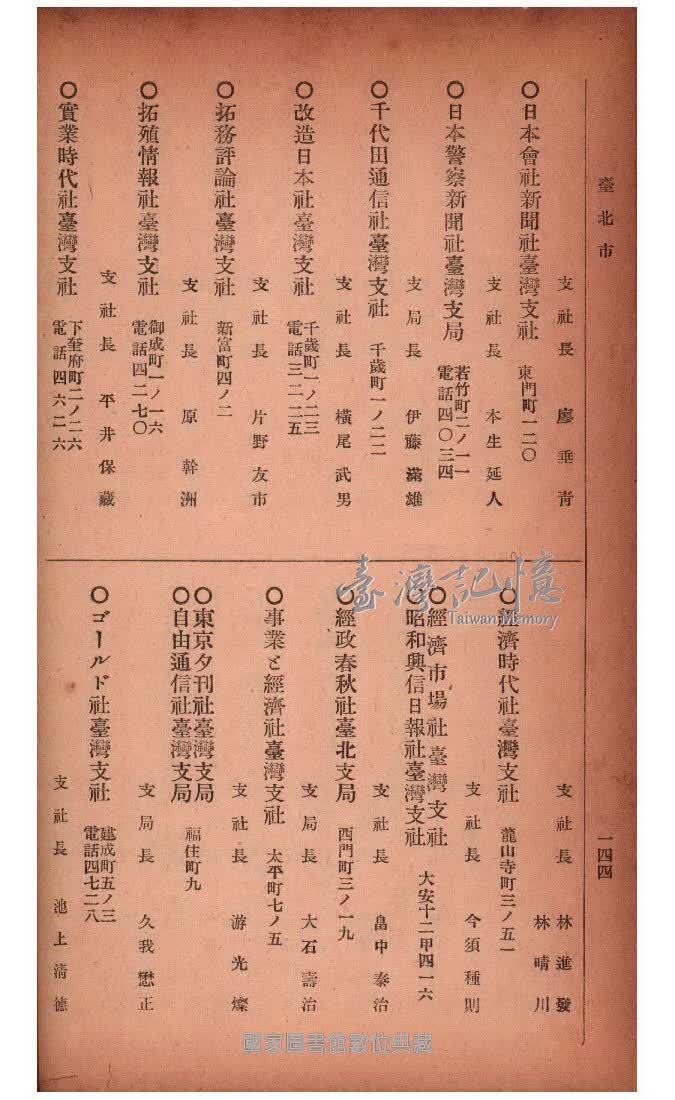 臺北市
一四四
支社長 廖垂青
〇日本會社新聞社臺灣支社 東門町一二〇
支社長 本生延人
〇日本警察新聞社臺灣支局 若竹町二ノ一一
電話四〇三四
支局長 伊藤滿雄
〇千代田通信社臺灣支社 千歲町一ノ二二
支社長 橫尾武男
〇改造日本社臺灣支社 千歲町一ノ二三
電話三一二五
支社長 片野友市
〇拓務評論社臺灣支社 新富町四ノ二
支社長 原幹洲
〇拓殖情報社臺灣支社 御成町一ノ一六
電話四二七〇
支社長 平井保藏
〇實業時代社臺灣支社 下奎府町二ノ二六
電話四六二六
支社長 林進發
林晴川
〇經濟時代社臺灣支社 龍山寺町三ノ五一
支社長 今須種則
〇經濟市場社臺灣支社
〇昭和興信日報社臺灣支社 大安十二甲四一六
支社長 畠中泰治
〇經政春秋社臺北支局 西門町三ノ一九
支局長 大石壽治
〇事業と經濟社臺灣支社 太平町七ノ五
支社長 游光燦
〇東京夕刊社臺灣支局
〇自由通信社臺灣支局 福住町九
支局長 久我懋正
〇ゴールド社臺灣支社 建成町五ノ三
電話四七二八
支社長 池上清德
臺灣記憶
Taiwan Memory
國家圖書館數位典藏